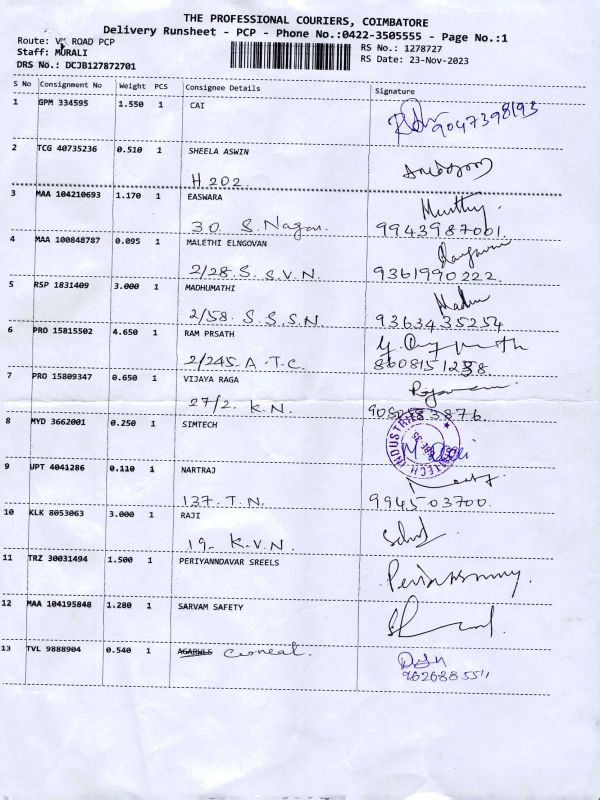 THE PROFESSIONAL COURIERS, COIMBATORE
Delivery Runsheet - PCP - Phone No.:0422-3505555 - Page No.:1
Route: ROAD PCP
RS No.: 1278727
Staff: MURALI
RS Date: 23-Nov-2023
DRS No.: DCJB127872701
S No Consignment No Weight PCS Consignee Details Signature
1 GPM 334595 1.550 1 CAI
9047398193
2 TCG 40735236 0.510 1 SHEELA ASWIN
H 202.
3 MAA 104210693 1.170 1 EASWARA Murthy.
30 S. Nagar. 9943987001.
4 MAA 100848787 0.095 1 MALETHI ELNGOVAN
2/28. S. S.V.N. 9361990222.
5 RSP 1831409 3.000 1 MADHUMATHI Madhu
2/58. S. S.S.N. 9363435254
6 PRO 15815502 4.650 1 RAM PRSATH
2/245. A.T.C. 8608151238.
7 PRO 15809347 0.650 1 VIJAYA RAGA
27/2. K.N.
8 MYD 3662001 0.250 1 SIMTECH
9 UPT 4041286 0.110 1 NARTRAJ
137. T.N. 994503700.
10 KLK 8053063 3.000 1 RAJI
19- K.V.N.
11 TRZ 30031494 1.500 1 PERIYANNDAVAR SREELS
12 MAA 104195848 1.280 1 SARVAM SAFETY
13 TVL 9888904 0.540 1 AGARWLS